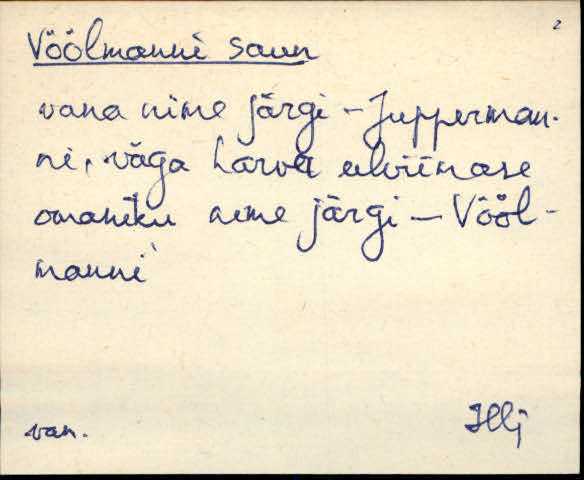 2
Vöölmanni saun
vana nime järgi – Jupperman-
ni, väga harva eelviimase
omaniku nime järgi – Vööl-
manni
van. Illj